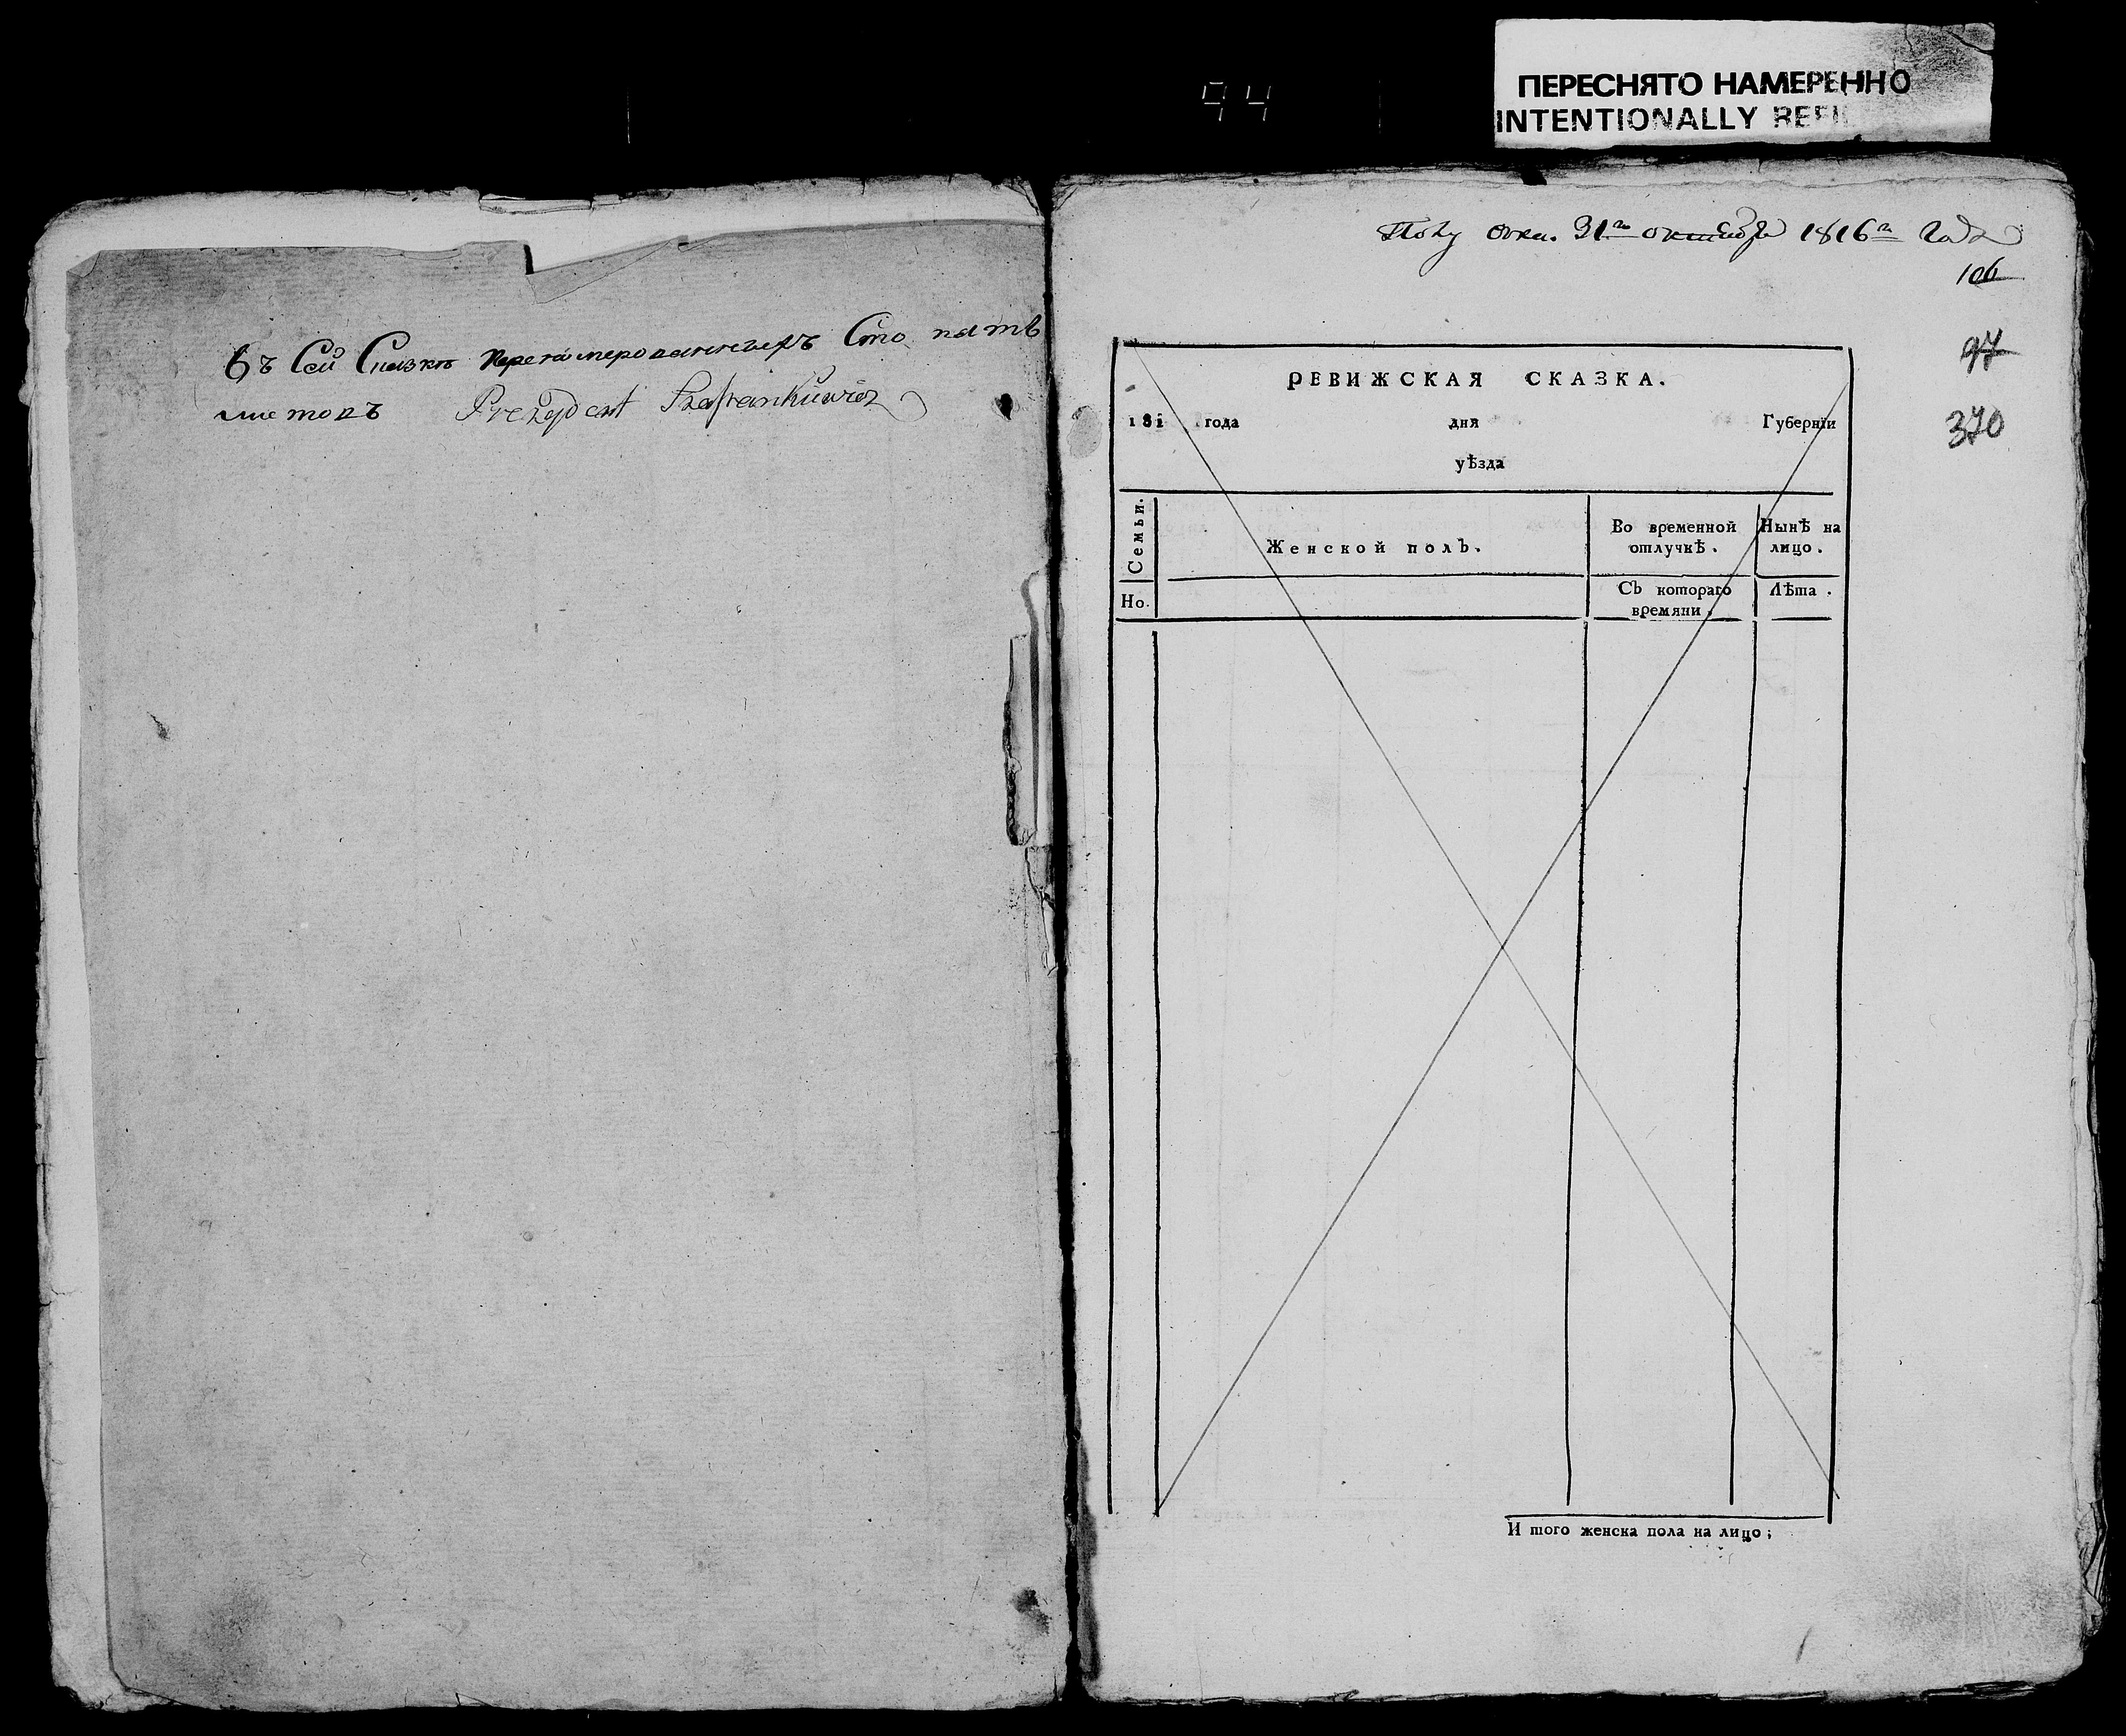 94
ПЕРЕСНЯТО НАМЕРЕННО
INTENTIONALLY REFI
Въ Сей Сказкѣ перенумерованныхъ Сто пять
листовъ Prezydent
31го октября 1816го года
106
97
370
РЕВИЖСКАЯ СКАЗКА.
181 года дня Губерніи
уѣзда
Семьи.
Женской полъ.
Во временной отлучкѣ.
Нынѣ на лицо.
Но.
Съ котораго времяни.
Лѣта.
И того женска пола на лицо;